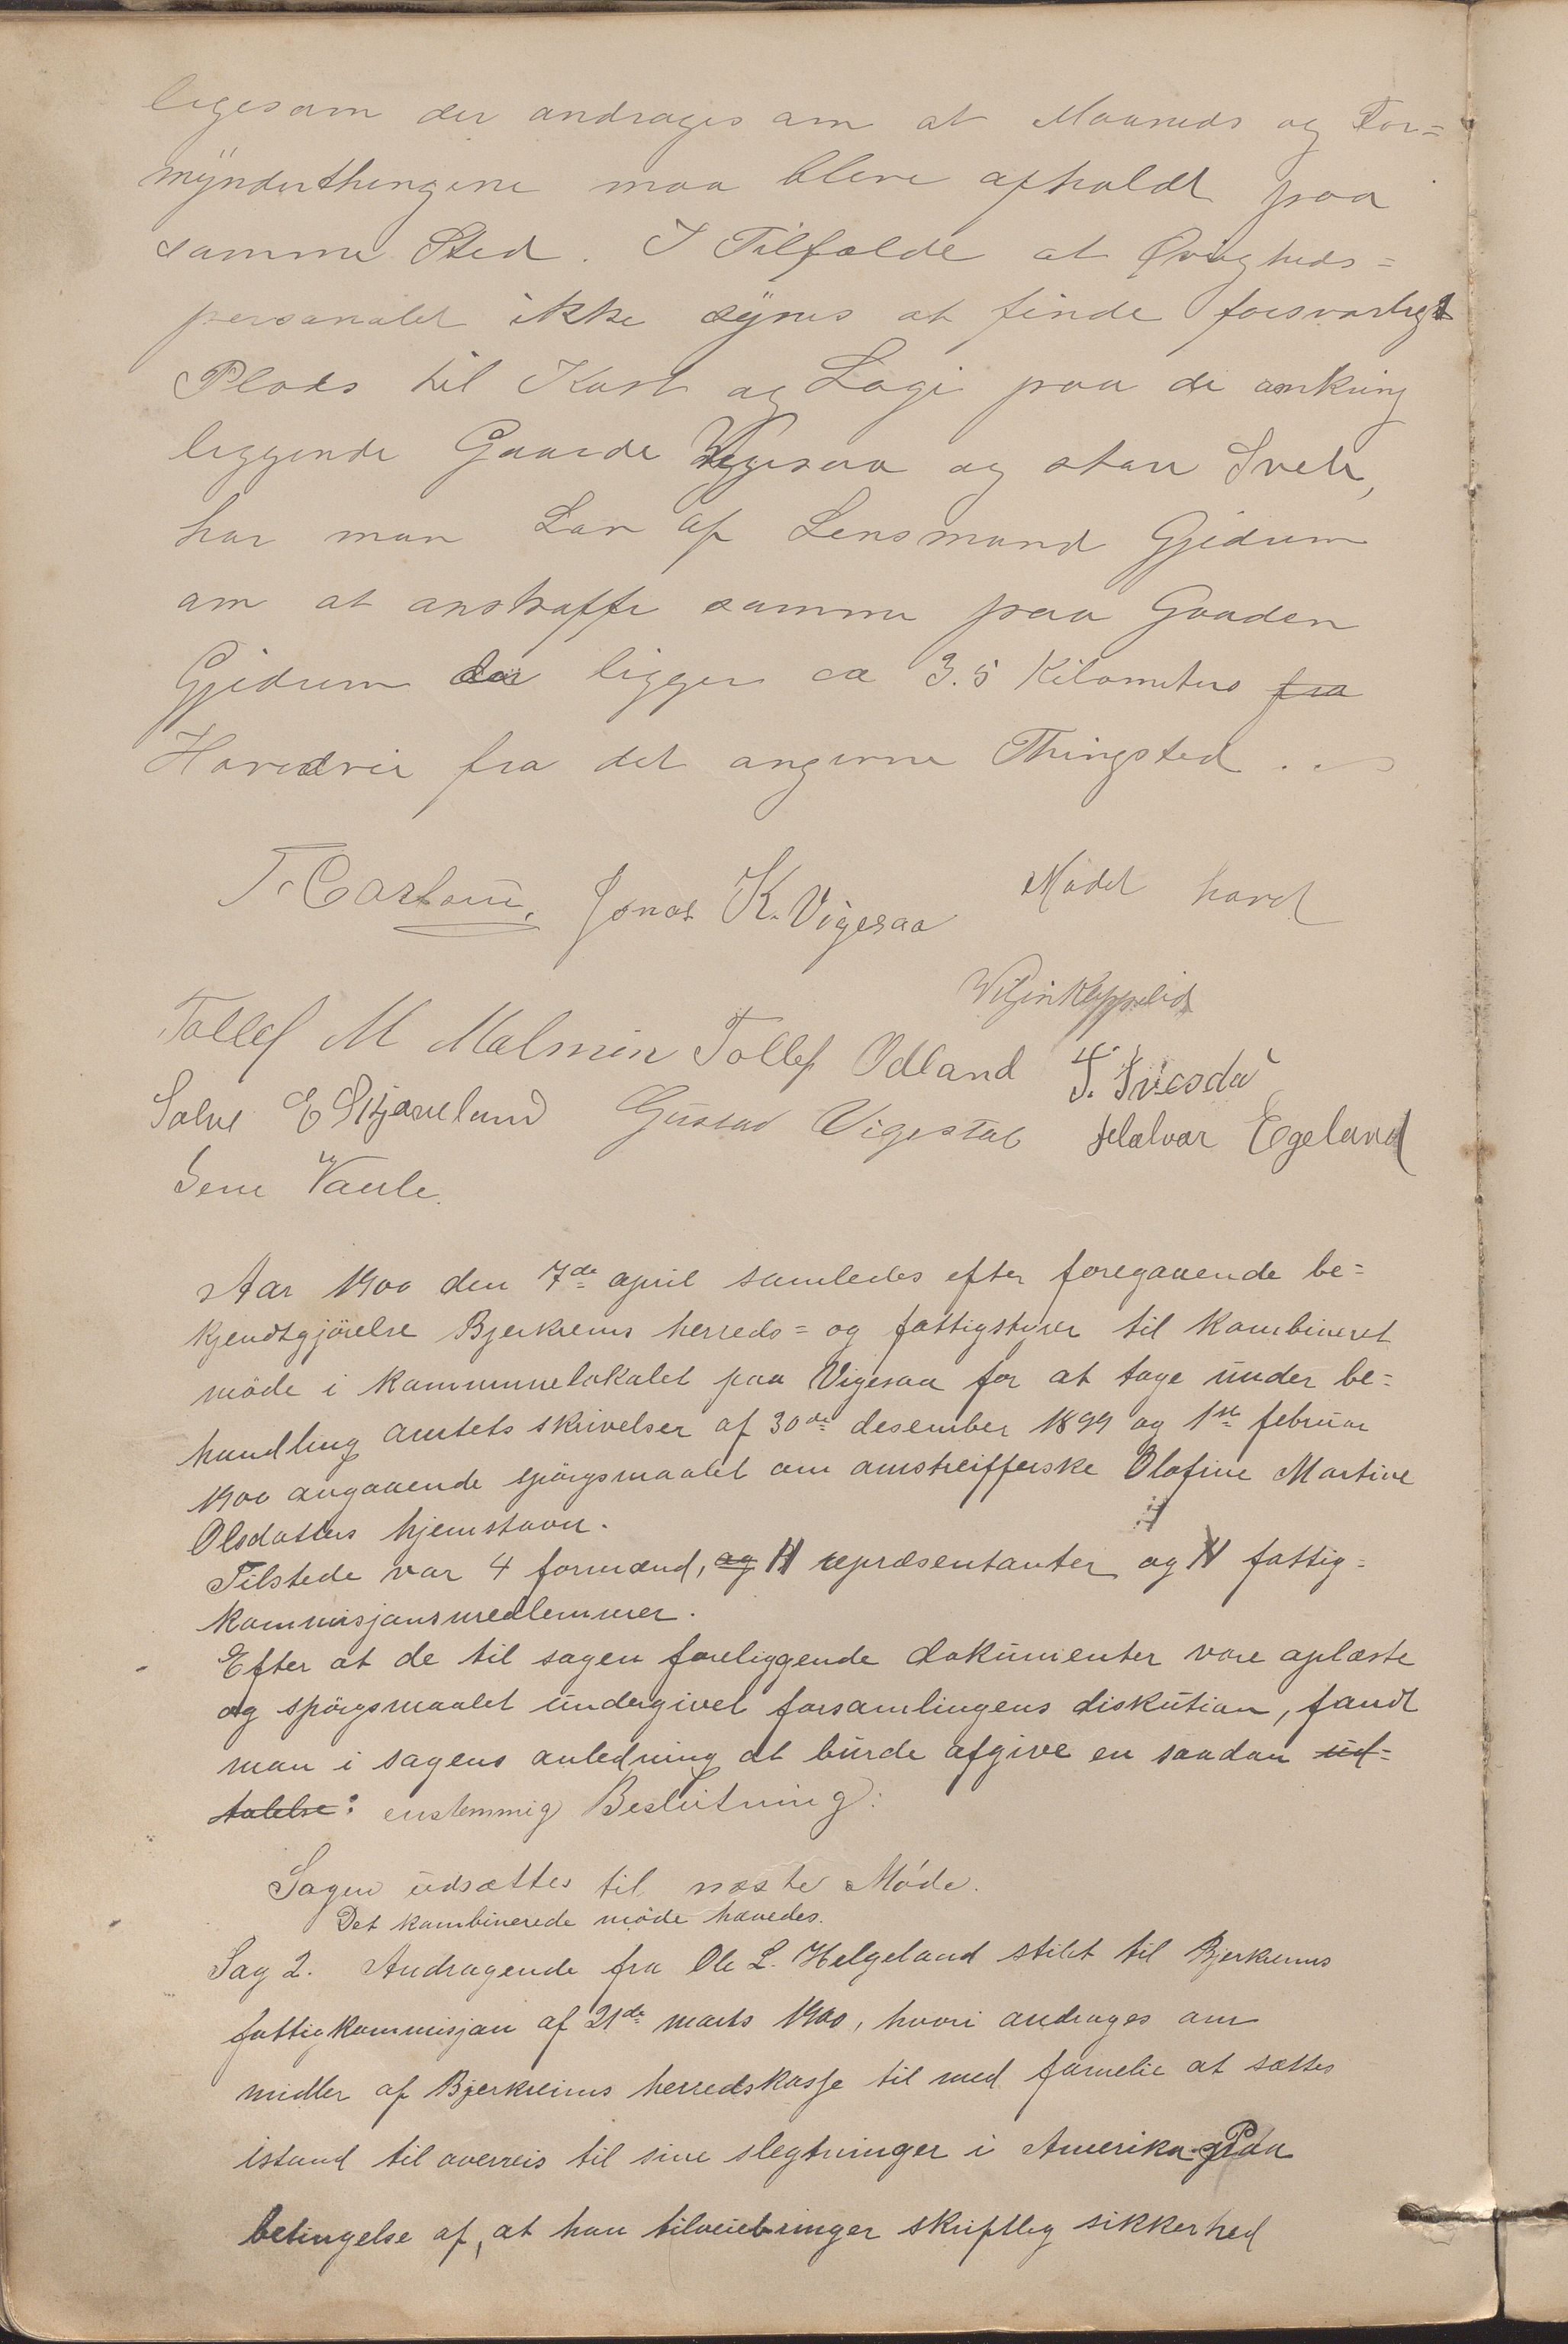 ligesom der andrages om at Maaneds og For=
mÿnderthingene maa bleve afholdt paa
samme Sted. I Tilfælde at Øvrigheds=
personalet ikke sÿnes at finde forsvarligt
Plads til Kost og Logi paa de omkring
liggende Gaarde Vigesaa og store Svela,
har man Lov af Lensmand Gjedrem
om at anskaffe samme paa Gaaden
Gjedrem der ligger ca 3.5 Kilometers fra
Hovedvei fra det angivne Thingsted.
Jonas K. Vigesaa Mødet hævet
Tollef M Malmin Tollef Odland
Salve E Skjæveland Gustav Vigestad Halvar Egeland
Aar 1900 den 7de april samledes efter foregaaende be=
kjendtgjörelse Bjerkrems herreds= og fattigstyrer til kombineret
möde i kommunelokalet paa Vigesaa for at tage under be=
handling amtets skrivelser af 30de desember 1899 og 1ste februar
1900 angaaende spörgsmaalet om omstreifferske Olofine Martine
Olsdatters hjemstavn.
Tilstede var 4 formænd, og 11 repræsentanter og fattig=
kommisjonsmedlemmer.
Efter at de til sagen foreliggende dokumenter vare oplæste
og spörgsmaalet undergivet forsamlingens diskution, fandt
man i sagens anledning at burde afgive en saadan ud=
talelse: enstemmig Beslutning:
Sagen udsættes til næste Möde.
Det kombinerede möde hævedes.
Sag 2. Andragende fra Ole L. Helgeland stilet til Bjerkreims
fattigkommisjon af 21de marts 1900, hvori andrages om
midler af Bjerkreims herredskasse til med familie at sættes
istand til overreis til sine slegtninger i Amerika Paa
betingelse af, at han tilveiebringer skriftlig sikkerhed